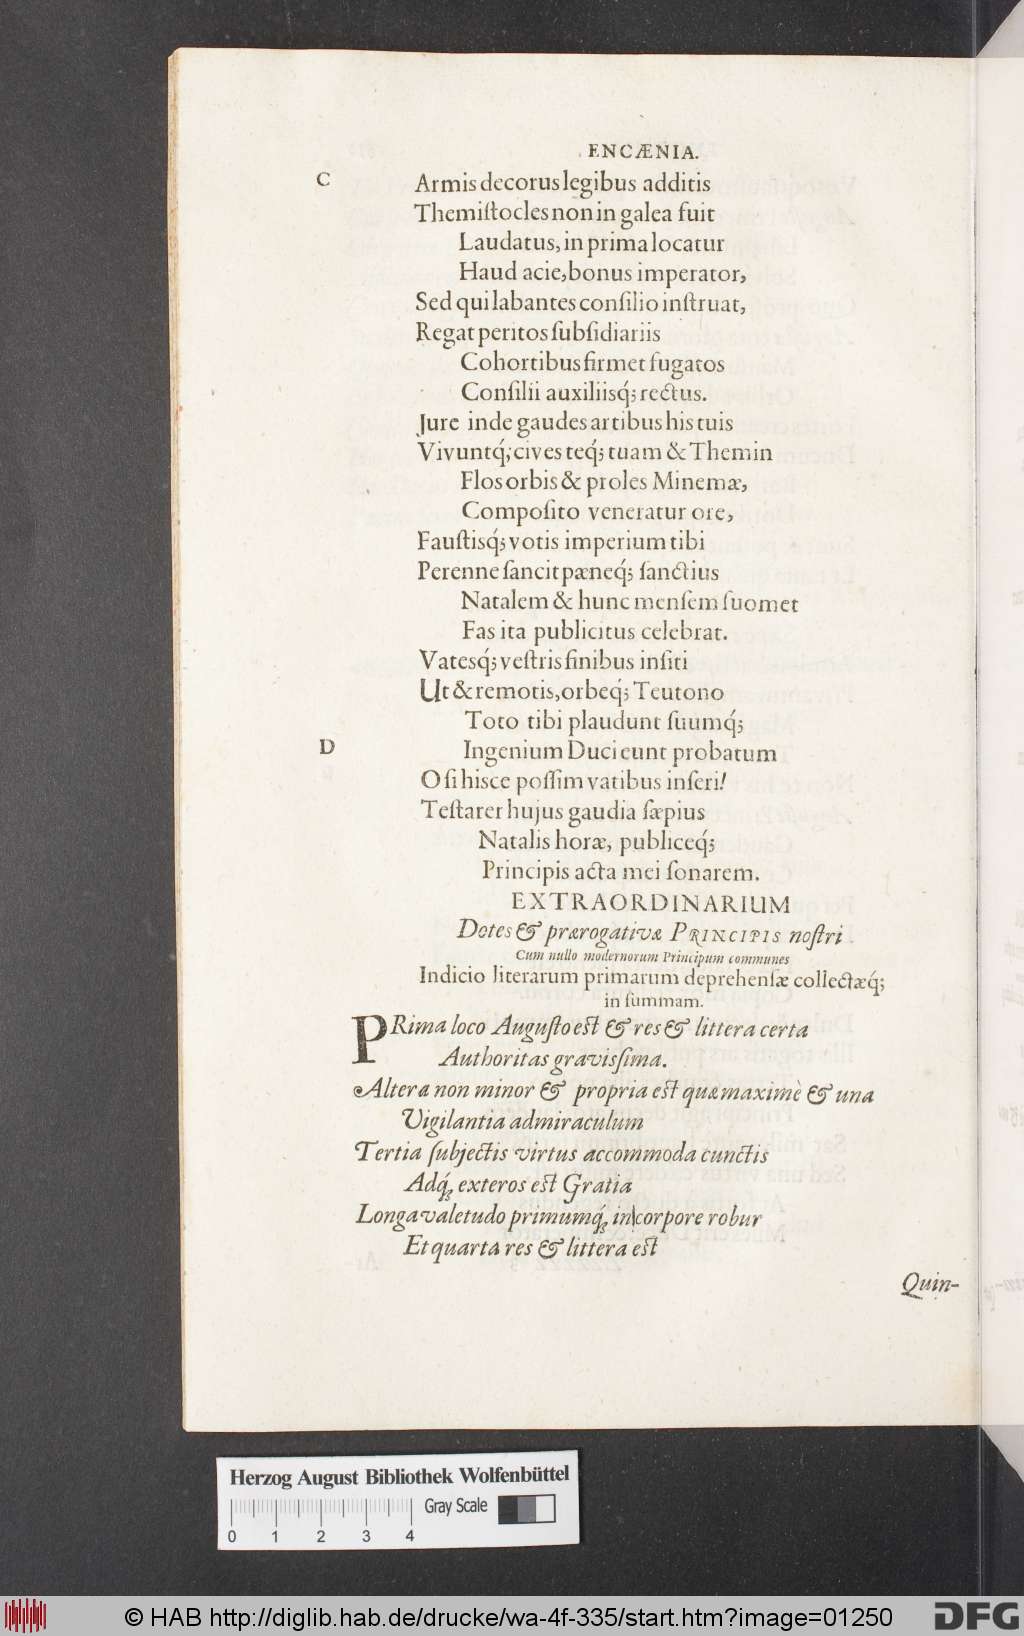 ENCÆNIA.
C Armis decorus legibus additis
Themiſtocles non in galea fuit
Laudatus, in prima locatur
Haud acie, bonus imperator,
Sed qui labantes conſilio inſtruat,
Regat peritos ſubſidiariis
Cohortibus firmet fugatos
Conſilii auxiliisq́; rectus.
Jure inde gaudes artibus his tuis
Vivuntq́; cives teq́; tuam & Themin
Flos orbis & proles Minemæ,
Compoſito veneratur ore,
Fauſtisq́; votis imperium tibi
Perenne ſancit pæneq́; ſanctius
Natalem & hunc menſem ſuomet
Fas ita publicitus celebrat.
Vatesq́; veſtris finibus inſiti
Ut & remotis, orbeq́; Teutono
Toto tibi plaudunt ſuumq́;
D Ingenium Duci eunt probatum
O ſi hisce poſſim vatibus inſeri!
Teſtarer hujus gaudia ſæpius
Natalis horæ, publiceq́;
Principis acta mei ſonarem.
EXTRAORDINARIUM
Dotes & prærogativæ PRINCIPIS noſtri
Cum nullo modernorum Principum communes
Indicio literarum primarum deprehenſæ collectæq́;
in ſummam.
PRima loco Auguſto eſt & res & littera certa
Authoritas graviſsima.
Altera non minor & propria eſt quæ maximè & una
Vigilantia admiraculum
Tertia ſubjectis virtus accommoda cunctis
Adq́; exteros eſt Gratia
Longa valetudo primumq́; in corpore robur
Et quarta res & littera eſt
Quin-
Herzog August Bibliothek Wolfenbüttel
Gray Scale
0 1 2 3 4
© HAB http://diglib.hab.de/drucke/wa-4f-335/start.htm?image=01250
DFG